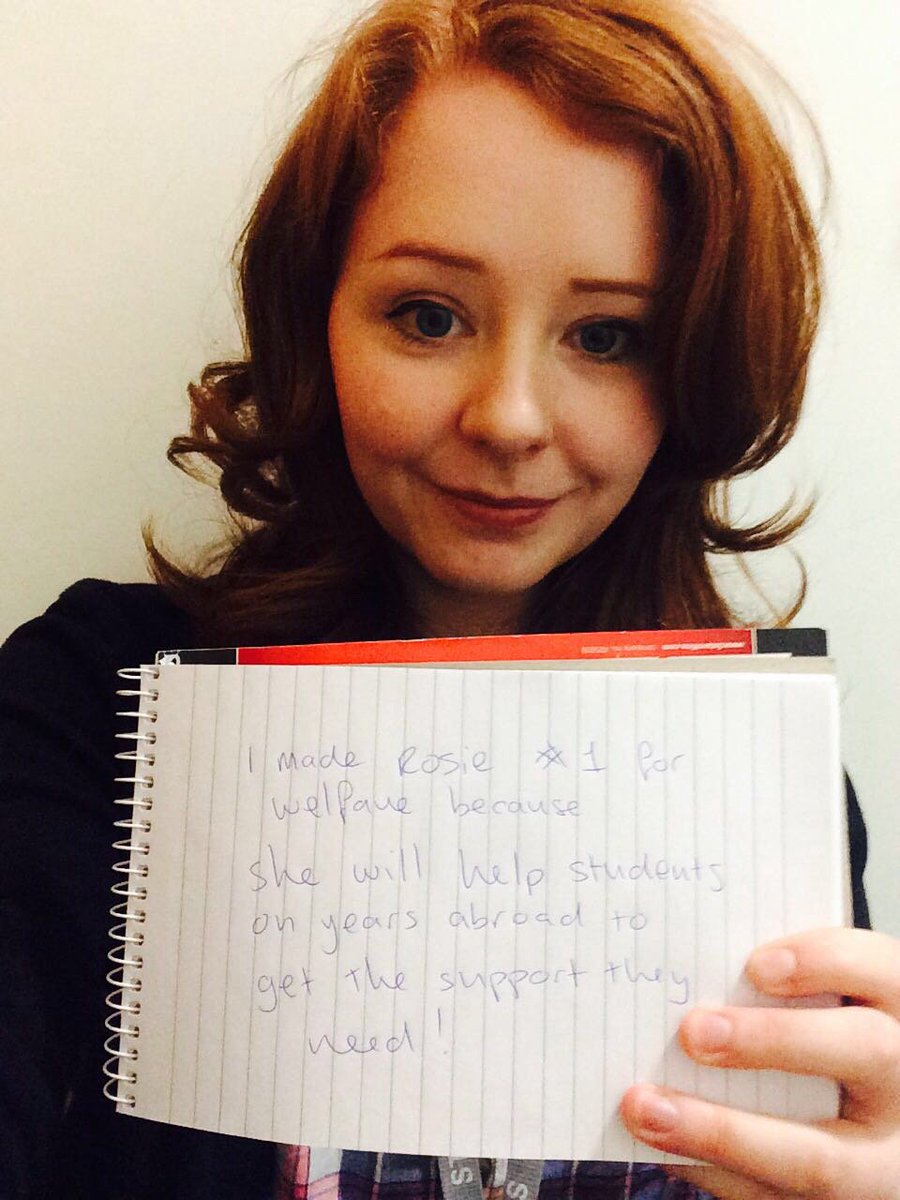 I made Rosie #1 for
welfare because
she will help students
on years abroad to
get the support they
need!